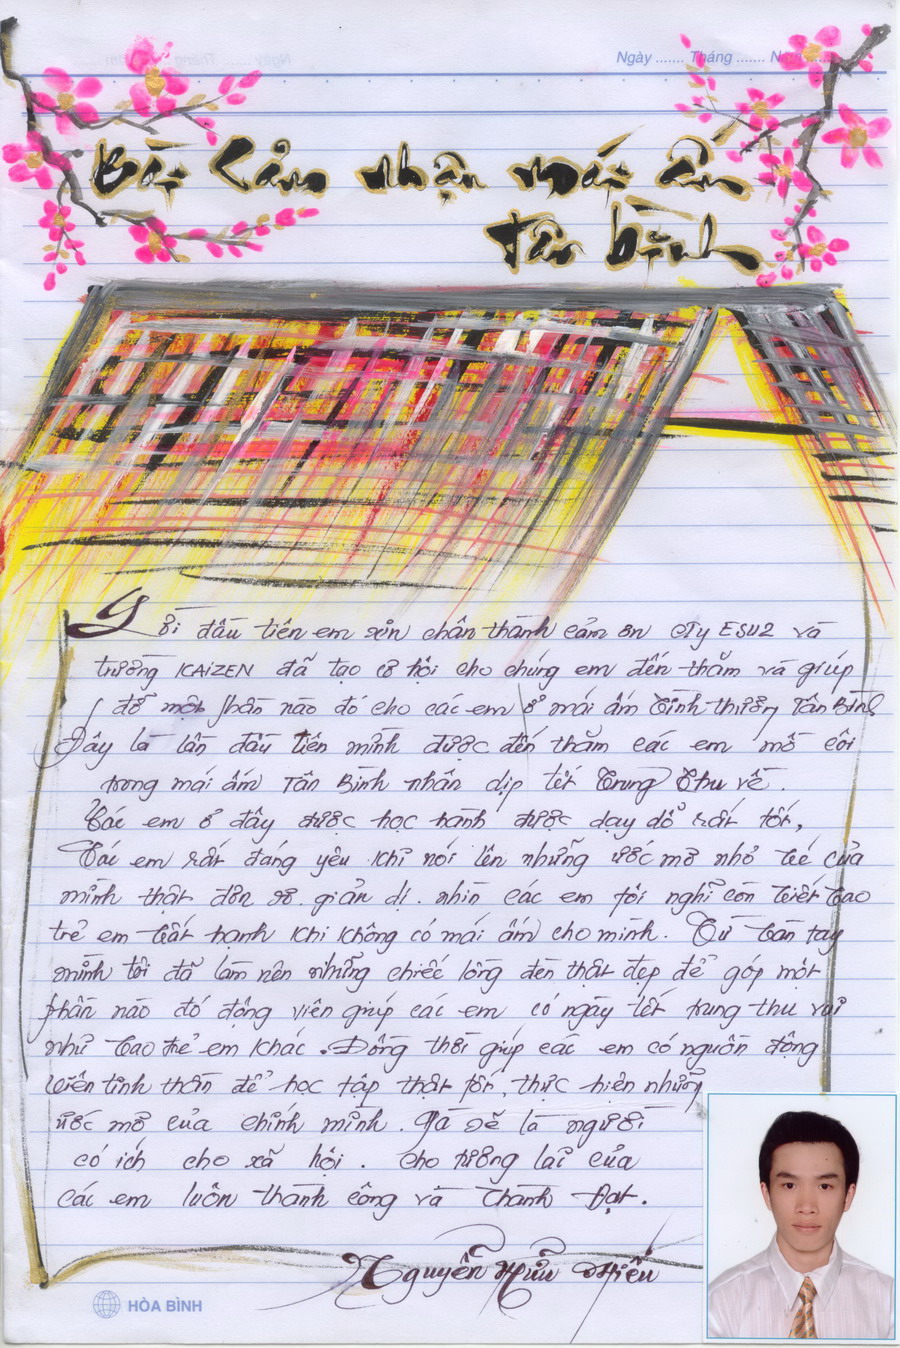 Ngày ....... Tháng ....... Năm .......
Bài Cảm nhận mái ấm
tân bình
Lời đầu tiên em xin chân thành cảm ơn cTy ESU2 và
trường KAIZEN đã tạo cơ hội cho chúng em đến thăm và giúp
đỡ một phần nào đó cho các em ở mái ấm tình thương Tân Bình
Đây là lần đầu tiên mình được đến thăm các em mồ côi
trong mái ấm Tân Bình nhân dịp tết Trung Thu về.
Các em ở đây được học hành được dạy dỗ rất tốt,
Các em rất đáng yêu khi nói lên những ước mơ nhỏ bé của
mình thật đơn sơ. giản dị. nhìn các em tôi nghĩ còn biết bao
trẻ em bất hạnh khi không có mái ấm cho mình. Từ bàn tay
mình tôi đã làm nên những chiếc lồng đèn thật đẹp để góp một
phần nào đó động viên giúp các em có ngày tết trung thu vui
như bao trẻ em khác. Đồng thời giúp các em có nguồn động
viên tinh thần để học tập thật tốt, thực hiện những
ước mơ của chính mình. Và sẽ là người
có ích cho xã hội. cho tương lai của
các em luôn thành công và Thành Đạt.
Nguyễn Hữu Hiếu
HÒA BÌNH